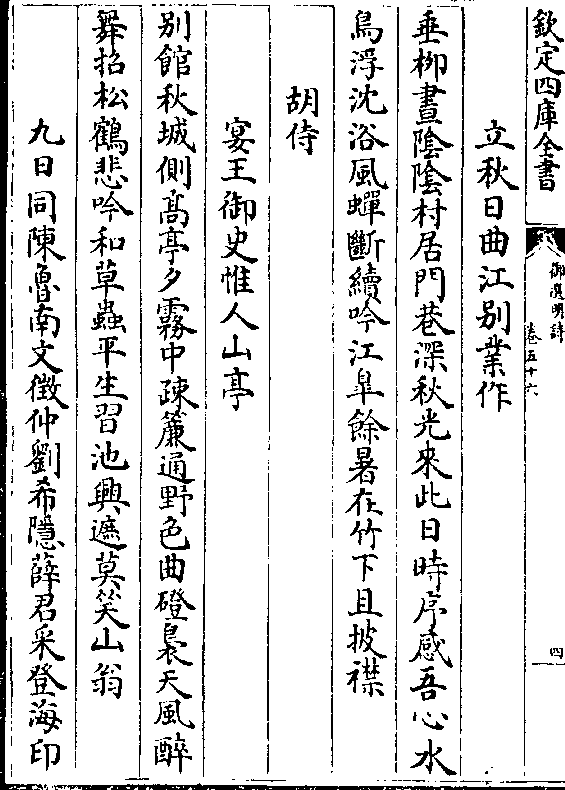 欽定四庫全書
御選明詩
卷五十六
四
立秋日曲江别業作
垂柳晝陰陰村居門巷深秋光來此日時序感吾心水
鳥浮沈浴風蟬斷續吟江臯餘暑在竹下且披襟
胡侍
宴王御史惟人山亭
别館秋城側髙亭夕霧中疎簾通野色曲磴裊天風醉
舞招松鶴悲吟和草蟲平生習池興遮莫笑山翁
九日同陳魯南文徴仲劉希隱薛君采登海印